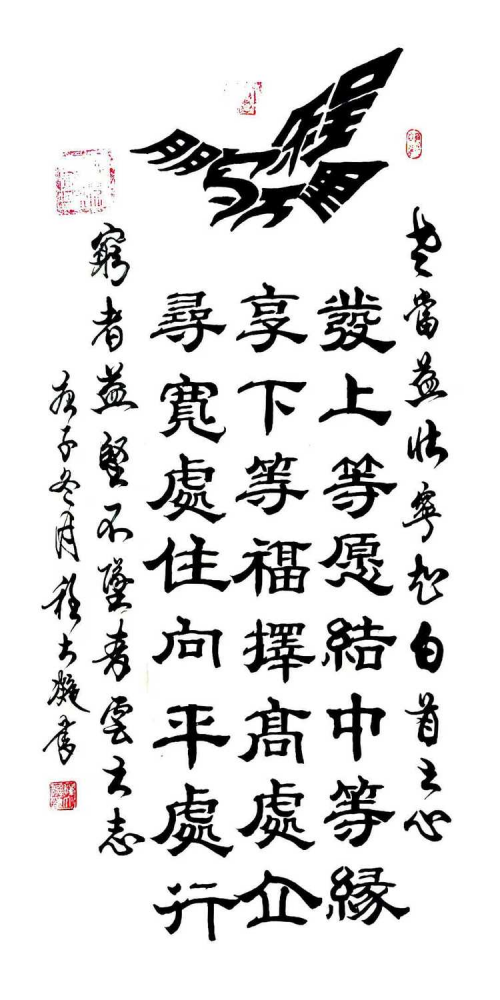 鵬程万里
老當益壯寧知白首之心
發上等愿結中等緣
享下等福擇高處立
尋寬處住向平處行
窮者益堅不墜青雲之志
庚子冬月程大書